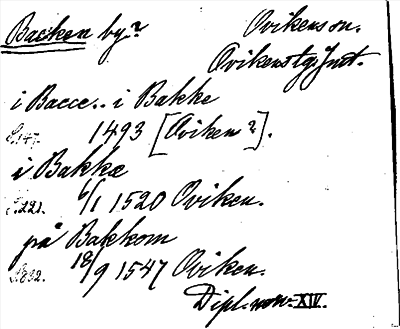 Backen by? Ovikens sn.
Ovikens tg. Jmt.
i Bacce.. i Bakke
S.147. 1493 [Oviken?].
i Bakka
S.221. 6/1 1520 Oviken.
på Bakkom
18/9 1547 Oviken.
Dipl. norv. XIV.